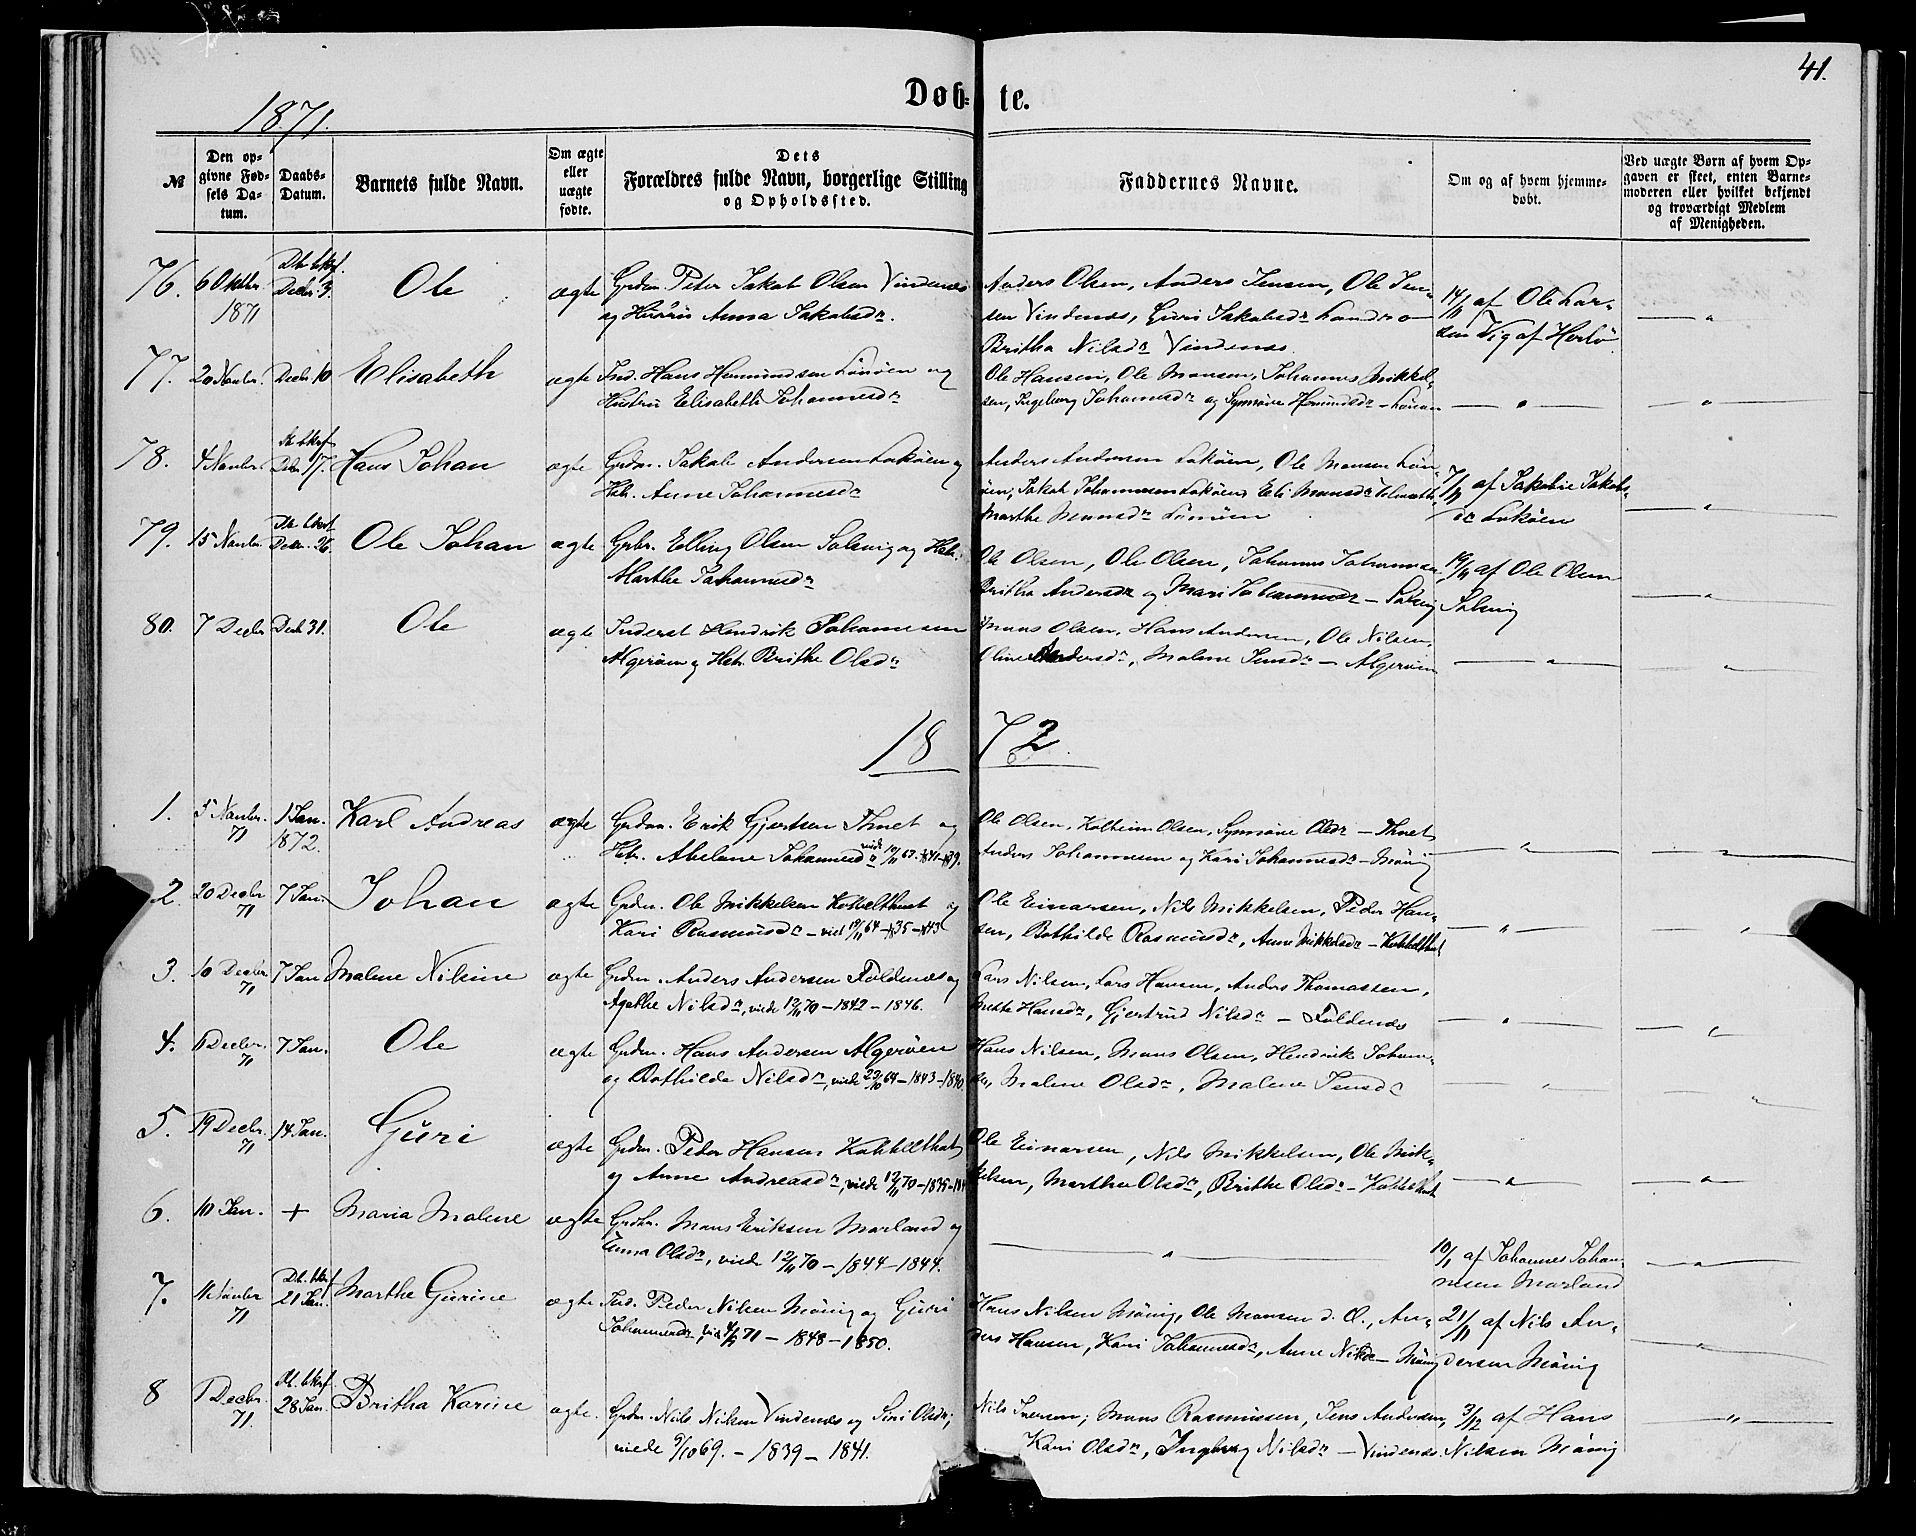 41.
Døb- te.
1871.
№
Den op-
givne Fød-
sels Da-
tum.
Daabs-
Datum.
Barnets fulde Navn.
Om ægte
eller
uægte
fødte.
Dets
Forældres fulde Navn, borgerlige Stilling
og Opholdssted.
Faddernes Navne.
Om og af hvem hjemme-
døbt.
Ved uægte Børn af hvem Op-
gaven er skeet, enten Barne-
moderen eller hvilket bekjendt
og troværdigt Medlem
af Menigheden.
76. 6 Oktbr. 1871 Db. bkrf. Decbr. 3. Ole ægte Grdm. Peder Jakob Olsen Vindenæs
og Hustru Anna Jakobsdr.
Anders Olsen, Anders Jensen, Ole Jen-
sen Vindenæs, Guri Jakobsdr Landro
Britha Nilsdr Vindenæs.
14/11 af Ole Lar-
sen Vig af Herlø
77. 20 Novbr. Decbr. 10 Elisabeth ægte Ind. Hans Hemundsen og
Hustru Elisabeth Johannesdr
Ole Hansen, Ole Monsen, Johannes Mikkel-
sen, Ingeborg Johannesdr og Synnøve
78. 4 Novbr. Db. bkrf. Decbr. 17. Hans Johan ægte Grdm. Jakob Andersen Lokøen og
Hstr. Anne Johannesdr
Anders Andersen Lokøen, Ole Monsen
Jakob Johannesen Lokøen, Eli Monsdr
Marthe Monsdr
7/11 af Jakobine Jakobs-
dr Lokøen
79. 15 Novbr. Db. bkrf. Decbr. 26. Ole Johan ægte Grbr. Elling Olsen Solsvig og Hstr.
Marthe Johannesdr
Ole Olsen, Ole Olsen, Johannes Johannesen
Britha Andersdr og Mari Johannesdr – Solsvig
19/11 af Ole Olsen
Solsvig
80. 7 Decbr Decbr 31. Ole ægte Inderst Hendrik Johannesen
Algerøen og Hstr. Brithe Olsdr
Mons Olsen, Hans Andersen, Ole Nilsen,
Oline Andersdr, Malene Jensdr – Algerøen
1872.
1. 5 Novbr. 71 1 Jan. 1872. Karl Andreas ægte Grdm. Erik Gjertsen Thuet og
Hstr. Abelone Johannesdr
Ole Olsen, Olsen, Synnøve Olsdr – Thuet
Anders Johannesen og Kari Johannesdr – Møvig
2. 20 Decbr 71 7 Jan. Johan ægte Grdm. Ole Mikkelsen Kobbelthvet og
Kari Rasmusdr – 64 – 35 – 43
Ole Einarsen, Nils Mikkelsen, Peder Han-
sen, Bothilde Rasmusdr, Anne Mikkelsdr – Kobbelthvet
3. 10 Decbr 71 7 Jan Malene Nilsine ægte Grdm. Anders Andersen Foldenæs og
Agathe Nilsdr, viede 12/11 70 – 1842 – 1846.
Lars Nilsen, Lars Hansen, Anders Thomassen,
Mette Hansdr, Gjertrud Nilsdr – Foldenæs
4. 6 Decbr. 71 7 Jan. Ole ægte Grdm. Hans Andersen Algerøen
og Bothilde Nilsdr, viede 64 – 1843 – 1840.
Hans Nilsen, Mons Olsen, Hendrik Johann-
sen, Malene Olsdr, Malene Jensdr
5. 19 Decbr. 71 14 Jan. Guri ægte Grdm. Peder Hansen Kobbelthvet
og Anne Andreasdr, viede 12/11 70 – 1835 –
Ole Einarsen, Nils Mikkelsen, Ole Mik-
kelsen, Martha Olsdr, Brithe Olsdr – Kobbelthvet
6. 10 Jan. + Maria Malene ægte Grdbr. Mons Eriksen Morland og
Anna Olsdr, viede 12/11 70 – 1844 – 1844.
10/1 af Johannes Johan-
nesen Morland
7. 11 Novbr 71 Db. bkrf 21 Jan. Marthe Gurine ægte Ind. Peder Nilsen Møvig og Guri
Johannesdr, 71 – 1848 – 1850.
Hans Nilsen Møvig, Ole Monsen d. Æ., An-
ders Hansen, Kari Johannesdr, Anne Nilsdr – Møvig
21/11 af Nils An-
dersen Møvig
8 1 Decbr. 71. Db. bkrf. 28 Jan. Britha Karine ægte. Grdm. Nils Nilsen Vindenæs og Siri Olsdr;
viede 9/10 69. – 1839 – 1841.
Nils Iversen; Mons Rasmussen, Jens Andersen,
Kari Olsdr, Ingeborg Nilsdr – Vindenæs.
3/12 af Hans
Nilsen Møvig